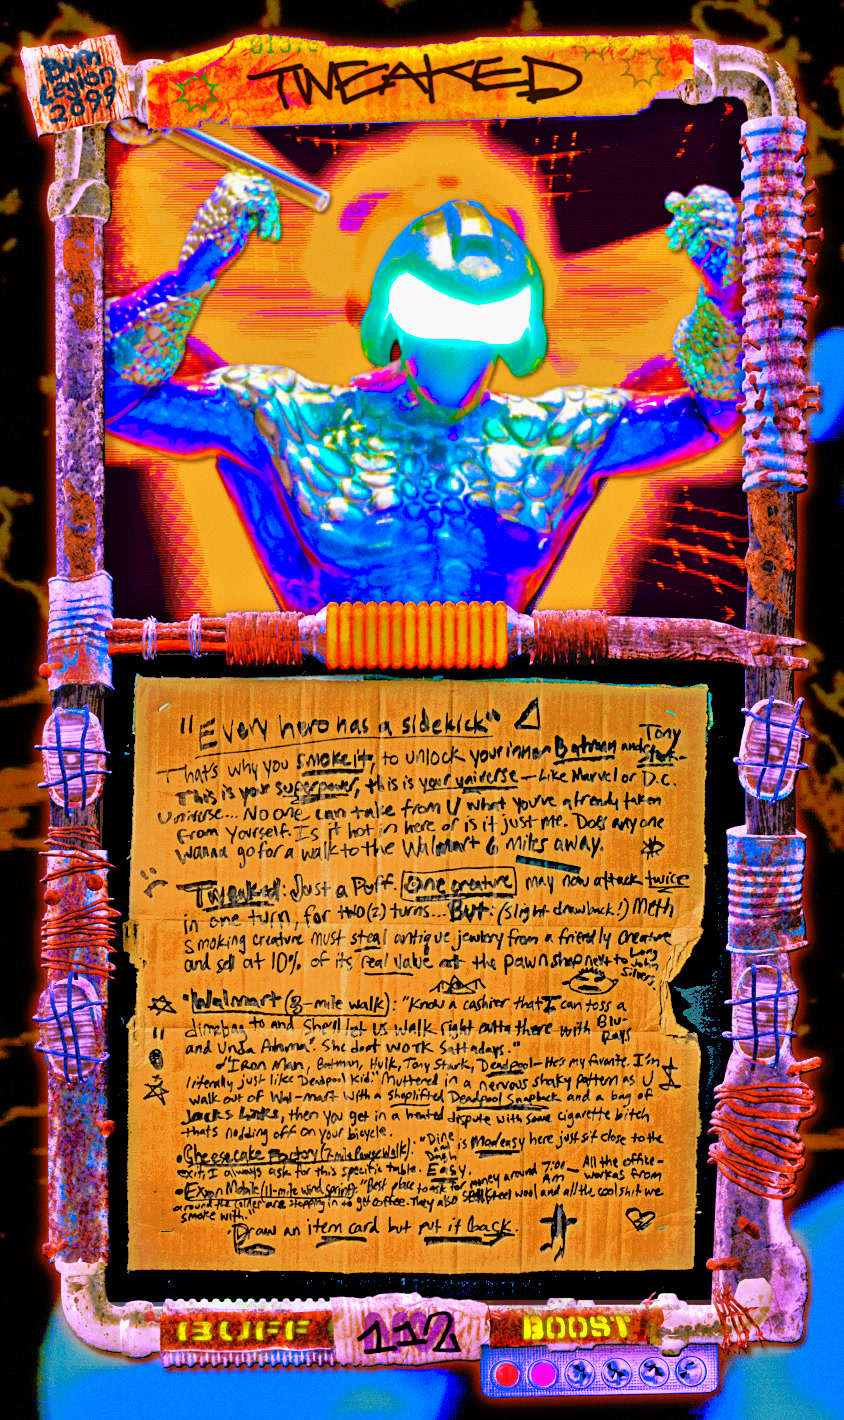 Burn
Legion
2099
TWEAKED
"Every hero has a sidekick"
That's why you smoke it, to unlock your inner Batman and Tony
Stark.
This is your superpower, this is your universe – Like Marvel or D.C.
Universe... No one can take from U what you've already taken
from yourself. Is it hot in here or is it just me. Does anyone
wanna go for a walk to the Walmart 6 miles away.
Tweaked: Just a Puff. One creature may now attack twice
in one turn, for two (2) turns... But: (slight drawback!) Meth
smoking creature must steal antique jewlery from a friendly creature
and sell at 10% of its real value at the pawn shop next to Long
John
Silvers.
Walmart (8-mile walk): "Know a cashier that I can toss a
dimebag to and she'll let us walk right outta there with Blu-
Rays
and Unda Adama'. She dont work Sattadays."
"Iron Man, Batman, Hulk, Tony Stark, Deadpool – He's my favorite. I'm
literally just like Deadpool kid." Muttered in a nervous shaky pattern as U
walk out of Wal-mart with a shoplifted Deadpool Snapback and a bag of
Jacks Links, then you get in a heated dispute with some cigarette bitch
thats nodding off on your bicycle.
Cheesecake Factory (7-mile Power Walk): "Dine
and
Dash is Mad easy here just sit close to the
exit, I always ask for this specific table. Easy.
Exxon Mobile (11-mile wind sprint): "Best place to ask for money around 7:00
AM – All the office-
workas from
around the corner are stopping in to get coffee. They also sell steel wool and all the cool shit we
smoke with."
Draw an item card but put it back.
BUFF
112
BOOST